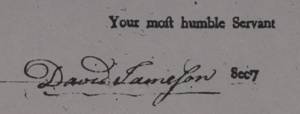 Your moſt humble Servant
David Jameſon Secy